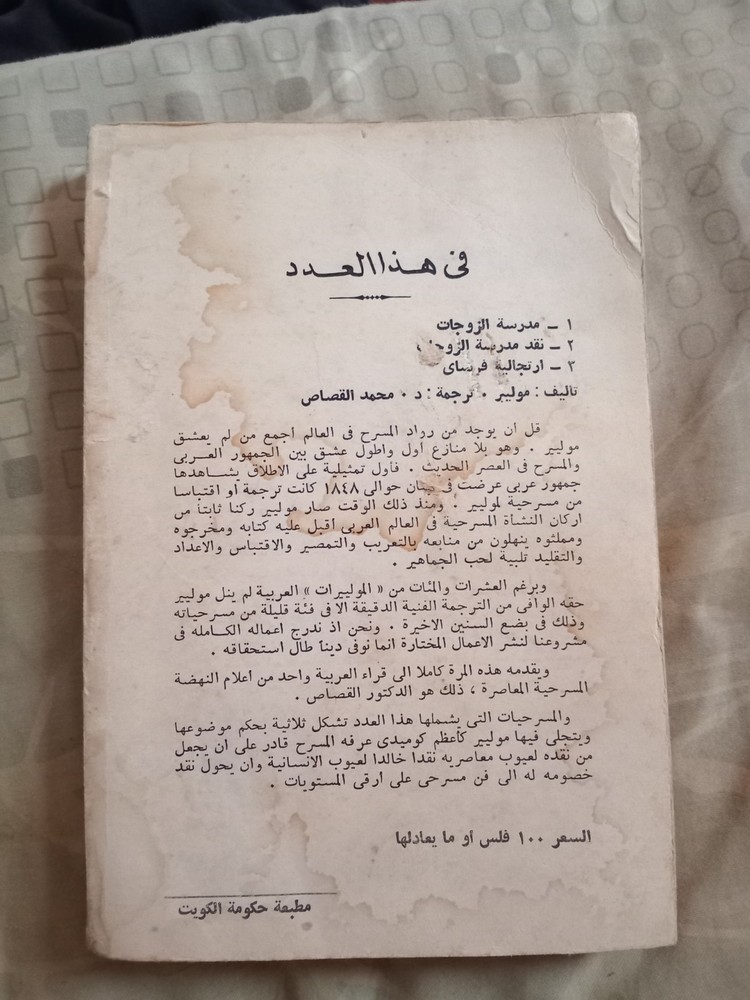 فى هذا العدد
١ ـ مدرسة الزوجات
٢ ـ نقد مدرسة الزوجات
٣ ـ ارتجالية فرساى
تاليف : موليير . ترجمة : د . محمد القصاص
قل أن يوجد من رواد المسرح فى العالم اجمع من لم يعشق
موليير . وهو بلا منازع أول واطول عشق بين الجمهور العربى
والمسرح فى العصر الحديث . فأول تمثيلية على الاطلاق يشاهدها
جمهور عربى عرضت فى لبنان حوالى ١٨٤٨ كانت ترجمة أو اقتباسا
من مسرحية لموليير . ومنذ ذلك الوقت صار موليير ركنا ثابتا من
اركان النشأة المسرحية فى العالم العربى أقبل عليه كتابه ومخرجوه
وممثلوه ينهلون من منابعه بالتعريب والتمصير والاقتباس والاعداد
والتقليد تلبية لحب الجماهير .
وبرغم العشرات والمئات من « الموليرات » العربية لم ينل موليير
حقه الوافى من الترجمة الفنية الدقيقة الا فى فئة قليلة من مسرحياته
وذلك فى بضع السنين الاخيرة . ونحن اذ ندرج اعماله الكامله فى
مشروعنا لنشر الاعمال المختارة انما نوفى دينا طال استحقاقه .
ويقدمه هذه المرة كاملا الى قراء العربية واحد من أعلام النهضة
المسرحية المعاصرة ، ذلك هو الدكتور القصاص .
والمسرحيات التى يشملها هذا العدد تشكل ثلاثية بحكم موضوعها
ويتجلى فيها موليير كأعظم كوميدى عرفه المسرح قادر على ان يجعل
من نقده لعيوب معاصريه نقدا خالدا لعيوب الانسانية وان يحول نقد
خصومه له الى فن مسرحى على أرقى المستويات .
السعر ١٠٠ فلس أو ما يعادلها
مطبعة حكومة الكويت